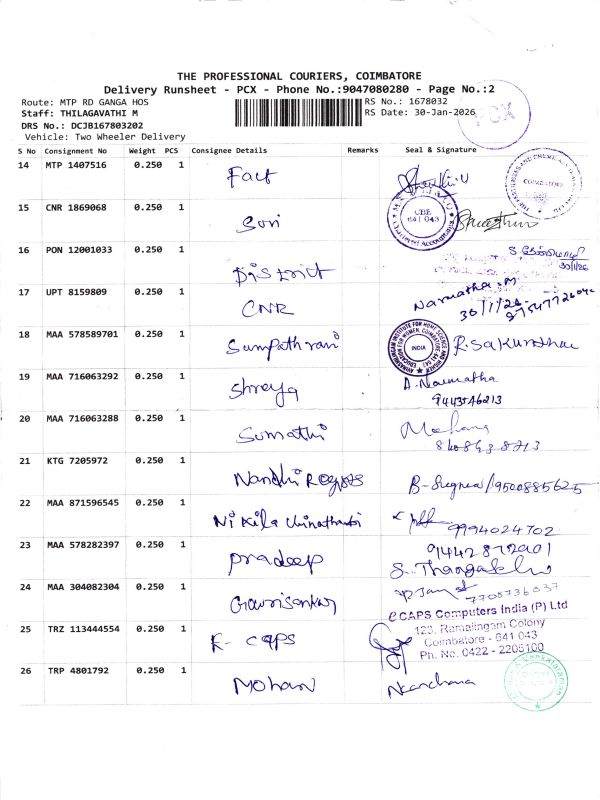 THE PROFESSIONAL COURIERS, COIMBATORE
Delivery Runsheet - PCX - Phone No.:9047080280 - Page No.:2
Route: MTP RD GANGA HOS
RS No.: 1678032
Staff: THILAGAVATHI M
RS Date: 30-Jan-2026
PCX
DRS No.: DCJB167803202
Vehicle: Two Wheeler Delivery
S No Consignment No Weight PCS Consignee Details Remarks Seal & Signature
14 MTP 1407516 0.250 1 Fact
COIMBATORE
15 CNR 1869068 0.250 1 Sori
CBE
641 043
16 PON 12001033 0.250 1 District
30/1/26
17 UPT 8159809 0.250 1 CNR Narmatha.M
30/1/26
18 MAA 578589701 0.250 1 Sampath rani R.Sakunthala
INDIA
19 MAA 716063292 0.250 1 Shreya A.Narmatha
9443546213
20 MAA 716063288 0.250 1 Sumathi Mohana
21 KTG 7205972 0.250 1 9500885625
22 MAA 871596545 0.250 1 Nikila 9994024702
23 MAA 578282397 0.250 1 pradeep
24 MAA 304082304 0.250 1 Gowrisankar 7708736037
25 TRZ 113444554 0.250 1 E- CAPS
eCAPS Computers India (P) Ltd
123, Ramalingam Colony
Coimbatore - 641 043
Ph. No. 0422 - 2205100
26 TRP 4801792 0.250 1 Mohan Kanchana